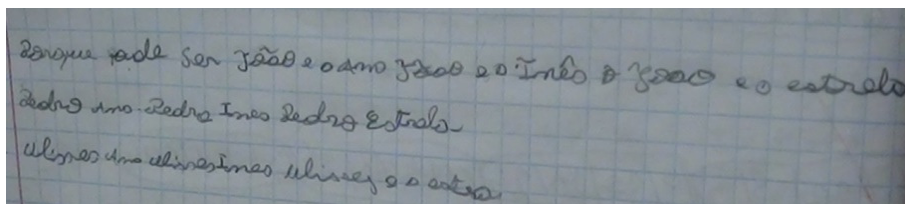 Porque pode ser João e o Ano João e o Inês o João e o estrelo
Pedro Ano Pedro Ines Pedro Estrelo
Ulisses Ano Ulisses Ines Ulisses e o